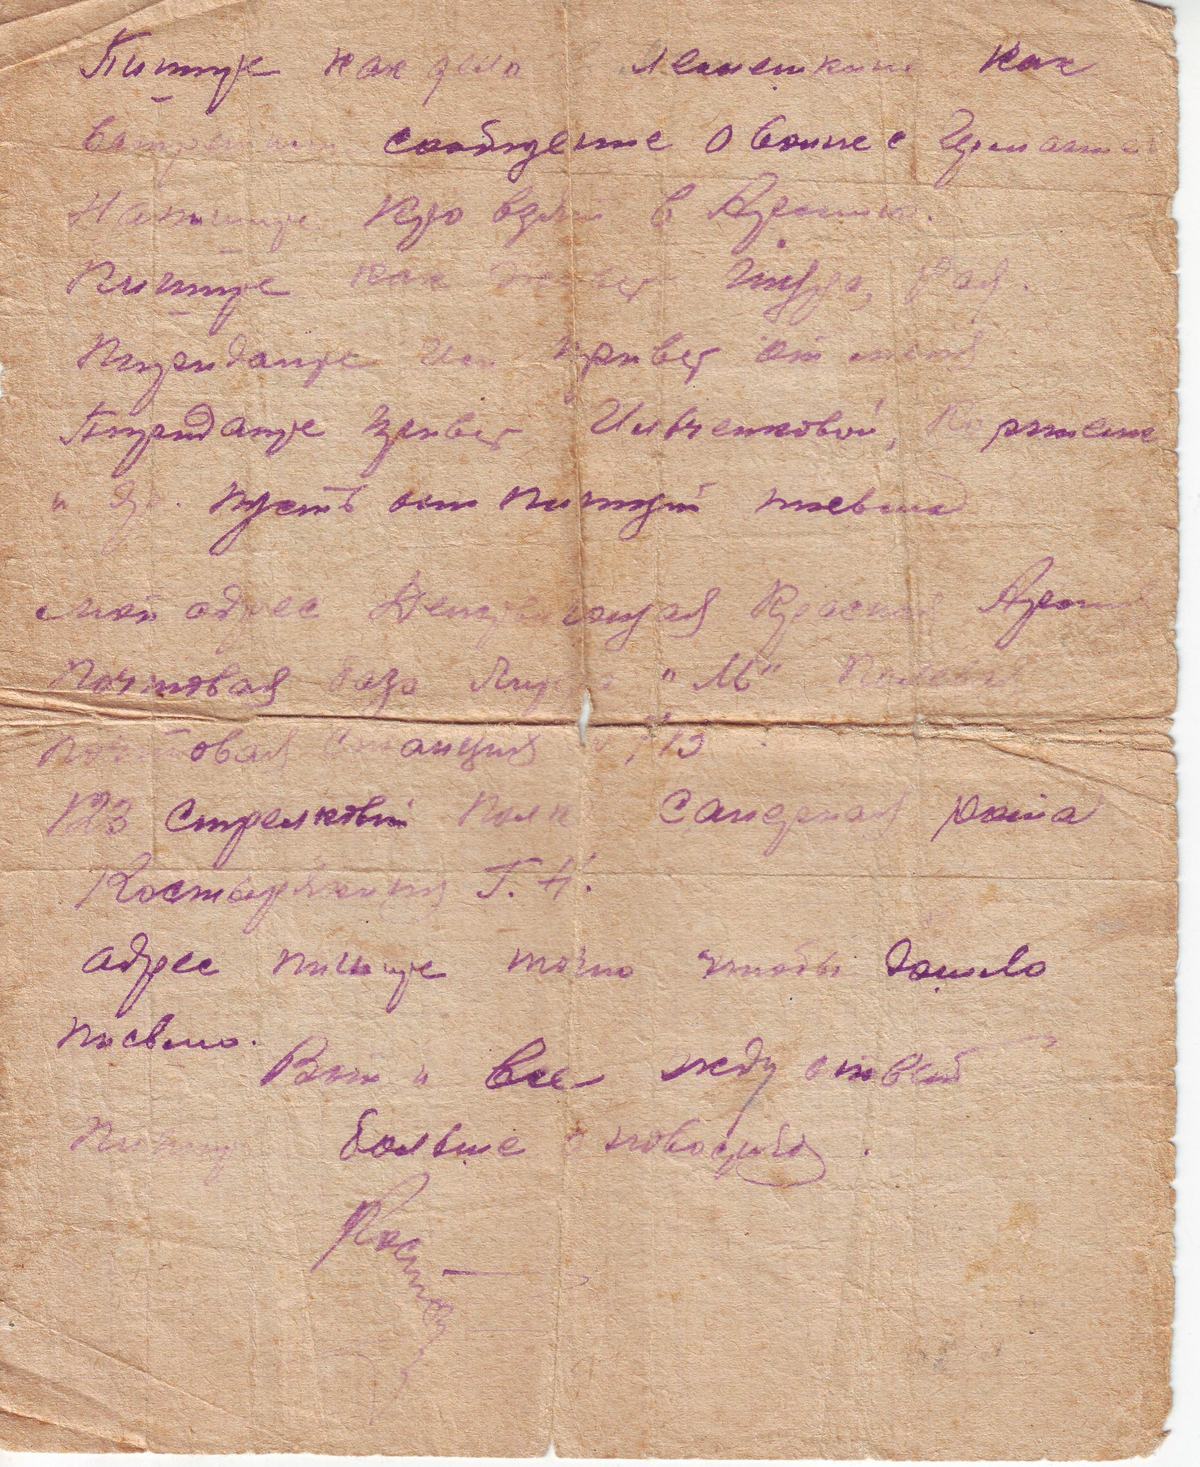 Пишите как дела в как
встретили сообщение о войне с Германией
Напишите кто взят в Армию.
Пишите как живет Шура, Рая.
Передайте им привет от меня.
Передайте привет Ильченковой,
и др. пусть они пишут письма
мой адрес Действующая Красная Армия
почтовая база Литер "М" Полевая
почтовая станция
стрелковый полк Саперная рота
Г. Н.
адрес пишите точно чтобы дошло
письмо.
Вот и все жду ответ
пишите больше о новостях.